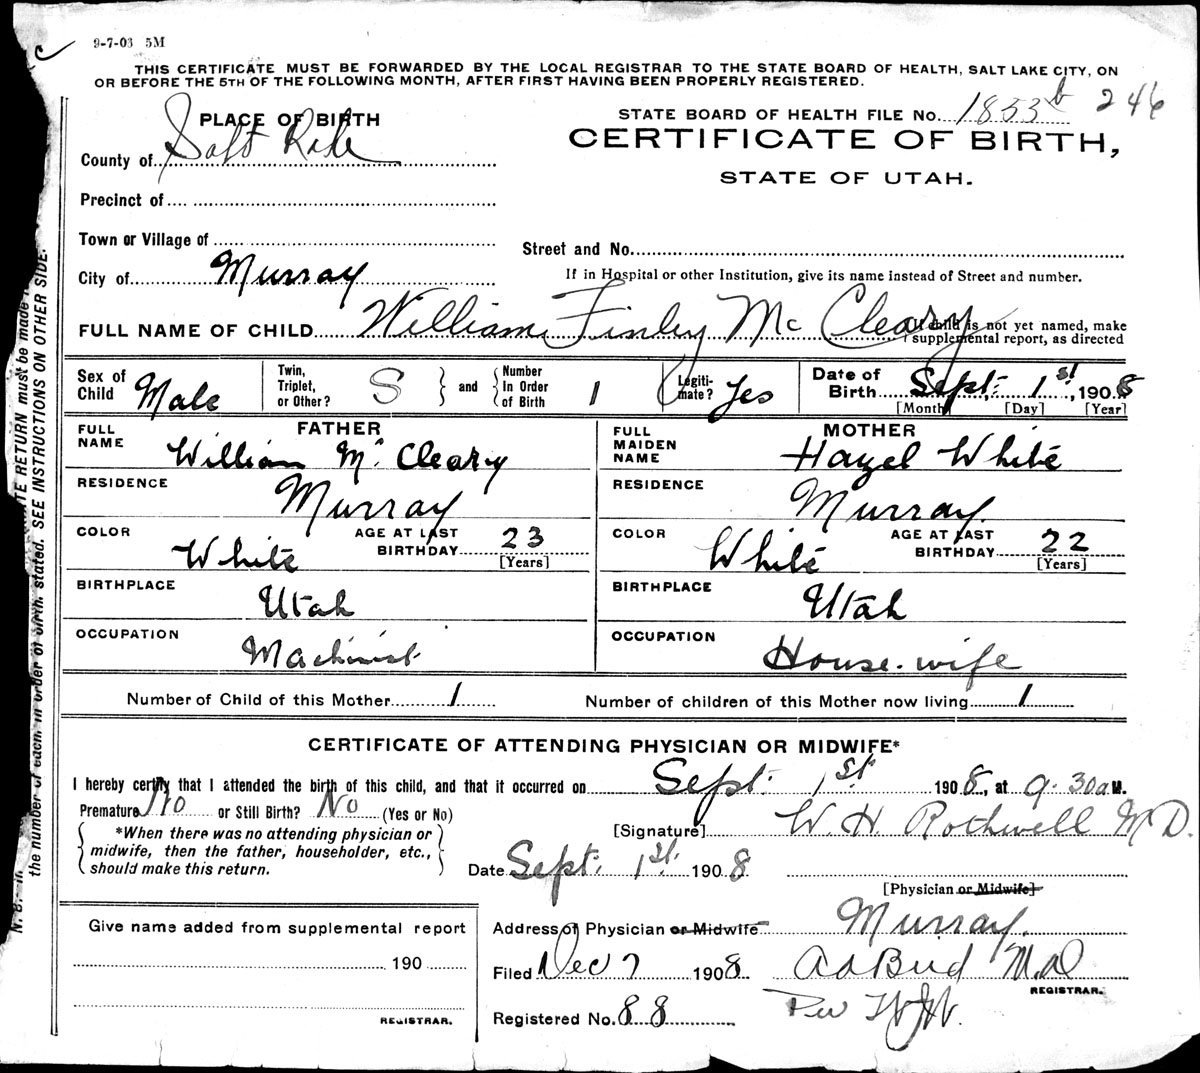 9-7-03 5M
THIS CERTIFICATE MUST BE FORWARDED BY THE LOCAL REGISTRAR TO THE STATE BOARD OF HEALTH, SALT LAKE CITY, ON
OR BEFORE THE 5TH OF THE FOLLOWING MONTH, AFTER FIRST HAVING BEEN PROPERLY REGISTERED.
PLACE OF BIRTH
STATE BOARD OF HEALTH FILE No. 1833 b 246
CERTIFICATE OF BIRTH,
County of Salt Lake
STATE OF UTAH.
Precinct of
Town or Village of
Street and No.
City of Murray
If in Hospital or other Institution, give its name instead of Street and number.
FULL NAME OF CHILD William Finley McCleary
If child is not yet named, make
supplemental report, as directed
Sex of Child Male
Twin, Triplet, or Other? S and Number In Order of Birth 1
Legiti-mate? Yes
Date of Birth Sept. 1st, 1908
[Month] [Day] [Year]
FATHER
FULL NAME William McCleary
MOTHER
FULL MAIDEN NAME Hazel White
RESIDENCE Murray
RESIDENCE Murray
COLOR White AGE AT LAST BIRTHDAY 23 [Years]
COLOR White AGE AT LAST BIRTHDAY 22 [Years]
BIRTHPLACE Utah
BIRTHPLACE Utah
OCCUPATION Machinist
OCCUPATION House-wife
Number of Child of this Mother 1
Number of children of this Mother now living 1
CERTIFICATE OF ATTENDING PHYSICIAN OR MIDWIFE*
I hereby certify that I attended the birth of this child, and that it occurred on Sept. 1st. 1908, at 9.30 a M.
Premature No or Still Birth? No (Yes or No)
*When there was no attending physician or
midwife, then the father, householder, etc.,
should make this return.
[Signature] W. H. Rothwell M D.
Date Sept. 1st. 1908
[Physician or Midwife]
Give name added from supplemental report
190
REGISTRAR.
Address of Physician or Midwife Murray.
Filed Dec 7 1908 M.D
REGISTRAR.
Registered No. 88
Per
N. B.—In
RETURN must be made
the number of each, in order of birth, stated. SEE INSTRUCTIONS ON OTHER SIDE.